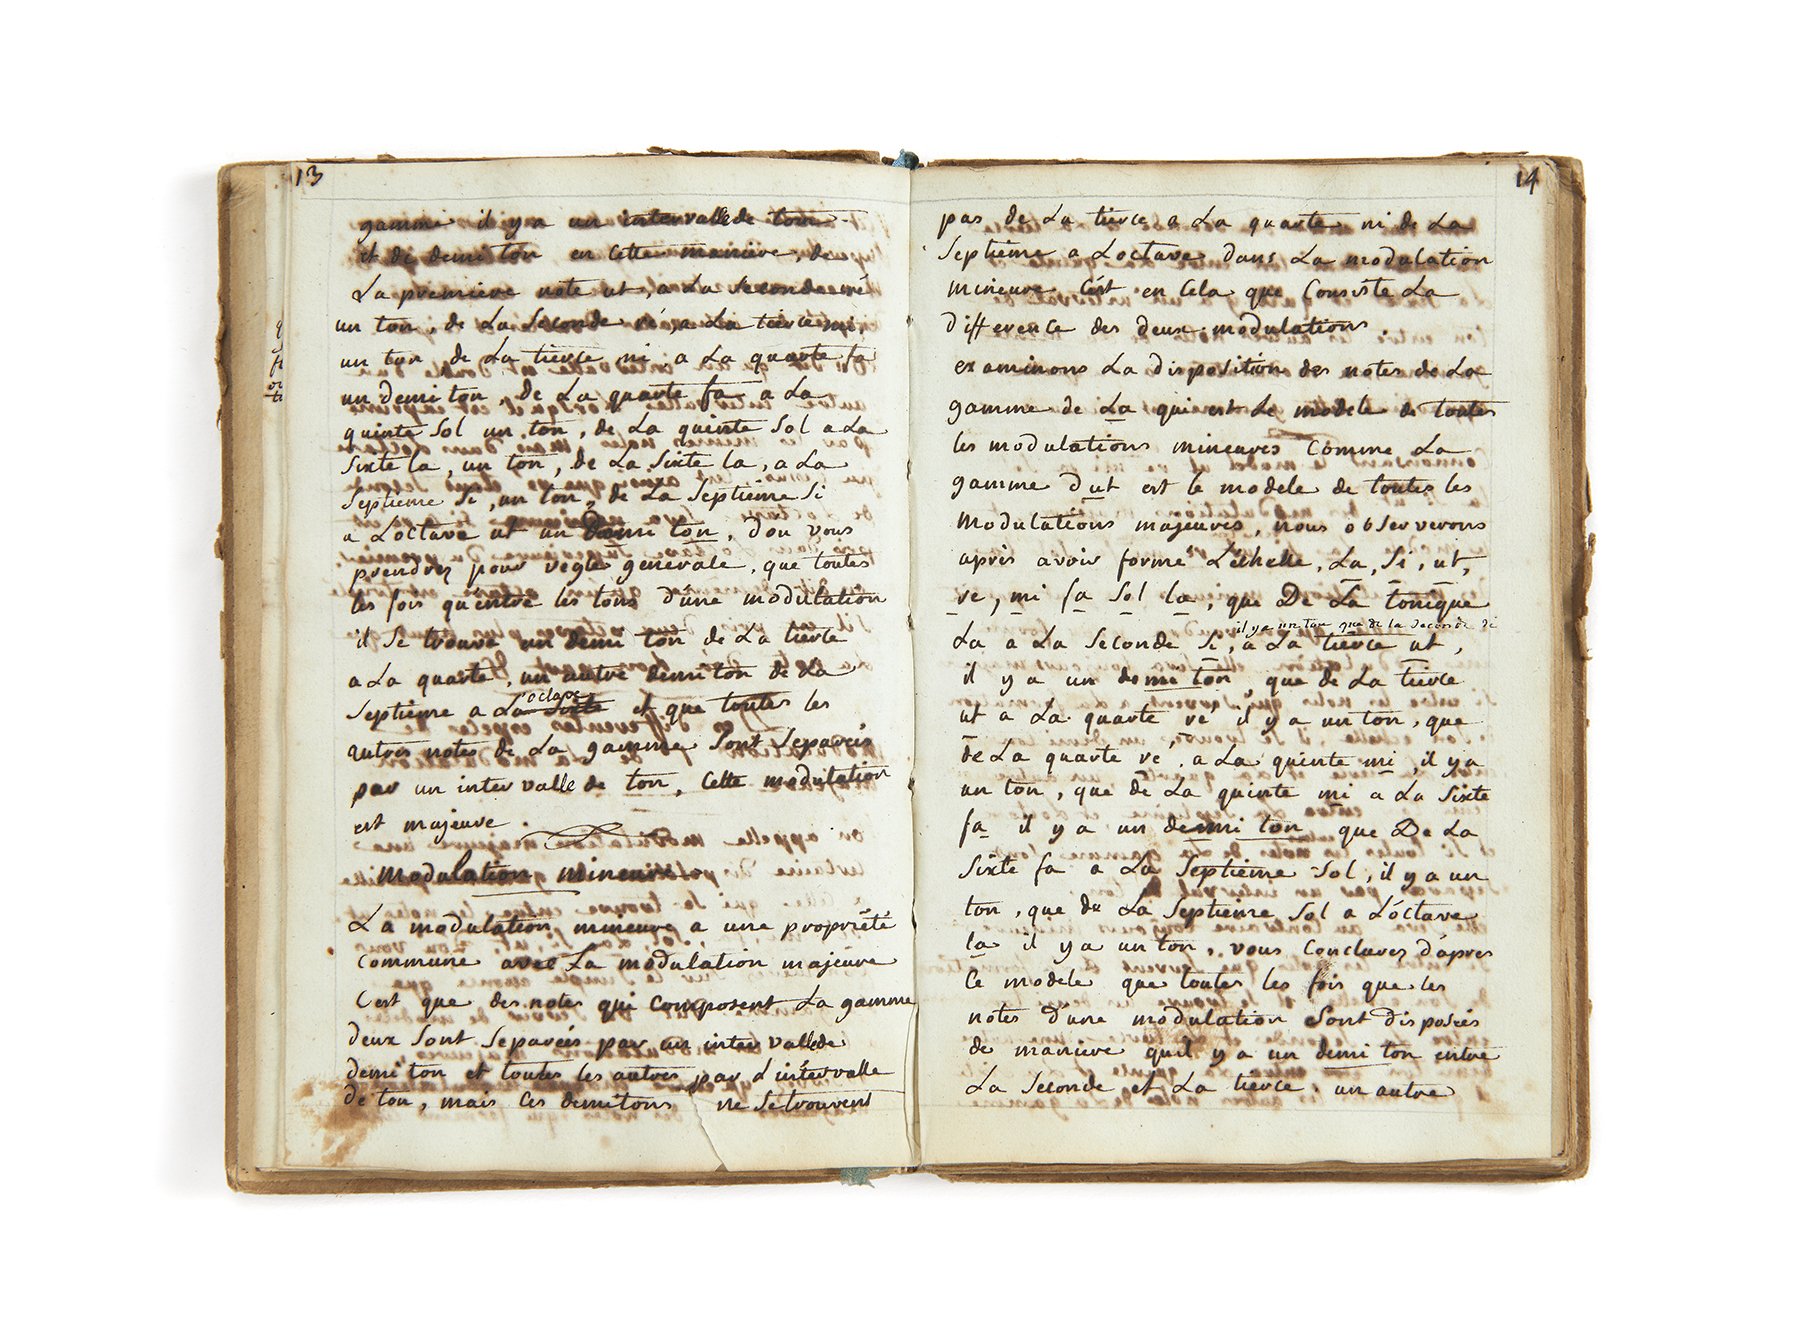 13
gamme il y a un intervalle de ton
et de demi ton en cette maniere, de
La premiere note ut, a La Seconde ré
un ton, de La Seconde ré, a La tierce mi,
un ton, de La tierce mi, a La quarte fa
un demi ton, de La quarte fa a La
quinte Sol un ton, de La quinte Sol a La
Sixte la, un ton, de La Sixte la, a La
Septieme Si, un ton, de La Septieme Si
a Loctave ut un Demi ton, Dou vous
prendrez pour regle generale, que toutes
les fois qu'entre les tons d'une modulation
il Se trouve un demi ton de La tierce
a La quarte, un autre demi ton de La
octave
Septieme a La Sixte et que toutes les
autres notes de La gamme Sont Separées
par un intervalle de ton, Cette modulation
est majeure.
Modulation mineure
La modulation mineure a une proprieté
Commune avec La modulation majeure
C'est que des notes qui composent La gamme
Deux Sont Separées par un intervalle de
demi ton et toutes les autres par d'intervalle
De ton, mais Ces demitons ne Se trouvent
14
pas de La tierce a La quarte ni de La
Septieme a Loctave dans La modulation
mineure C'est en Cela que Consiste La
Difference des deux modulations.
examinons La disposition des notes de La
gamme de La qui est Le modele de toutes
les modulations mineures Comme La
gamme Dut est le modele de toutes les
Modulations majeures, nous observerons
après avoir formé L'echelle, La, Si, ut,
re, mi fa Sol la, que De La tonique
il y a un ton que de la Seconde Si
La a La Seconde Si, a La tierce ut,
il y a un demi ton, que de La tierce
ut a La quarte ré il y a un ton, que
de La quarte ré, a La quinte mi, il y a
un ton, que de La quinte mi a La Sixte
fa il y a un demi ton que De La
Sixte fa a La Septieme Sol, il y a un
ton, que de La Septieme Sol a L'octave
la il y a un ton, vous Conclurez d'apres
Ce modele que toutes les fois que les
notes D'une modulation Sont disposées
de maniere qu'il y a un demi ton entre
La Seconde et La tierce, un autre